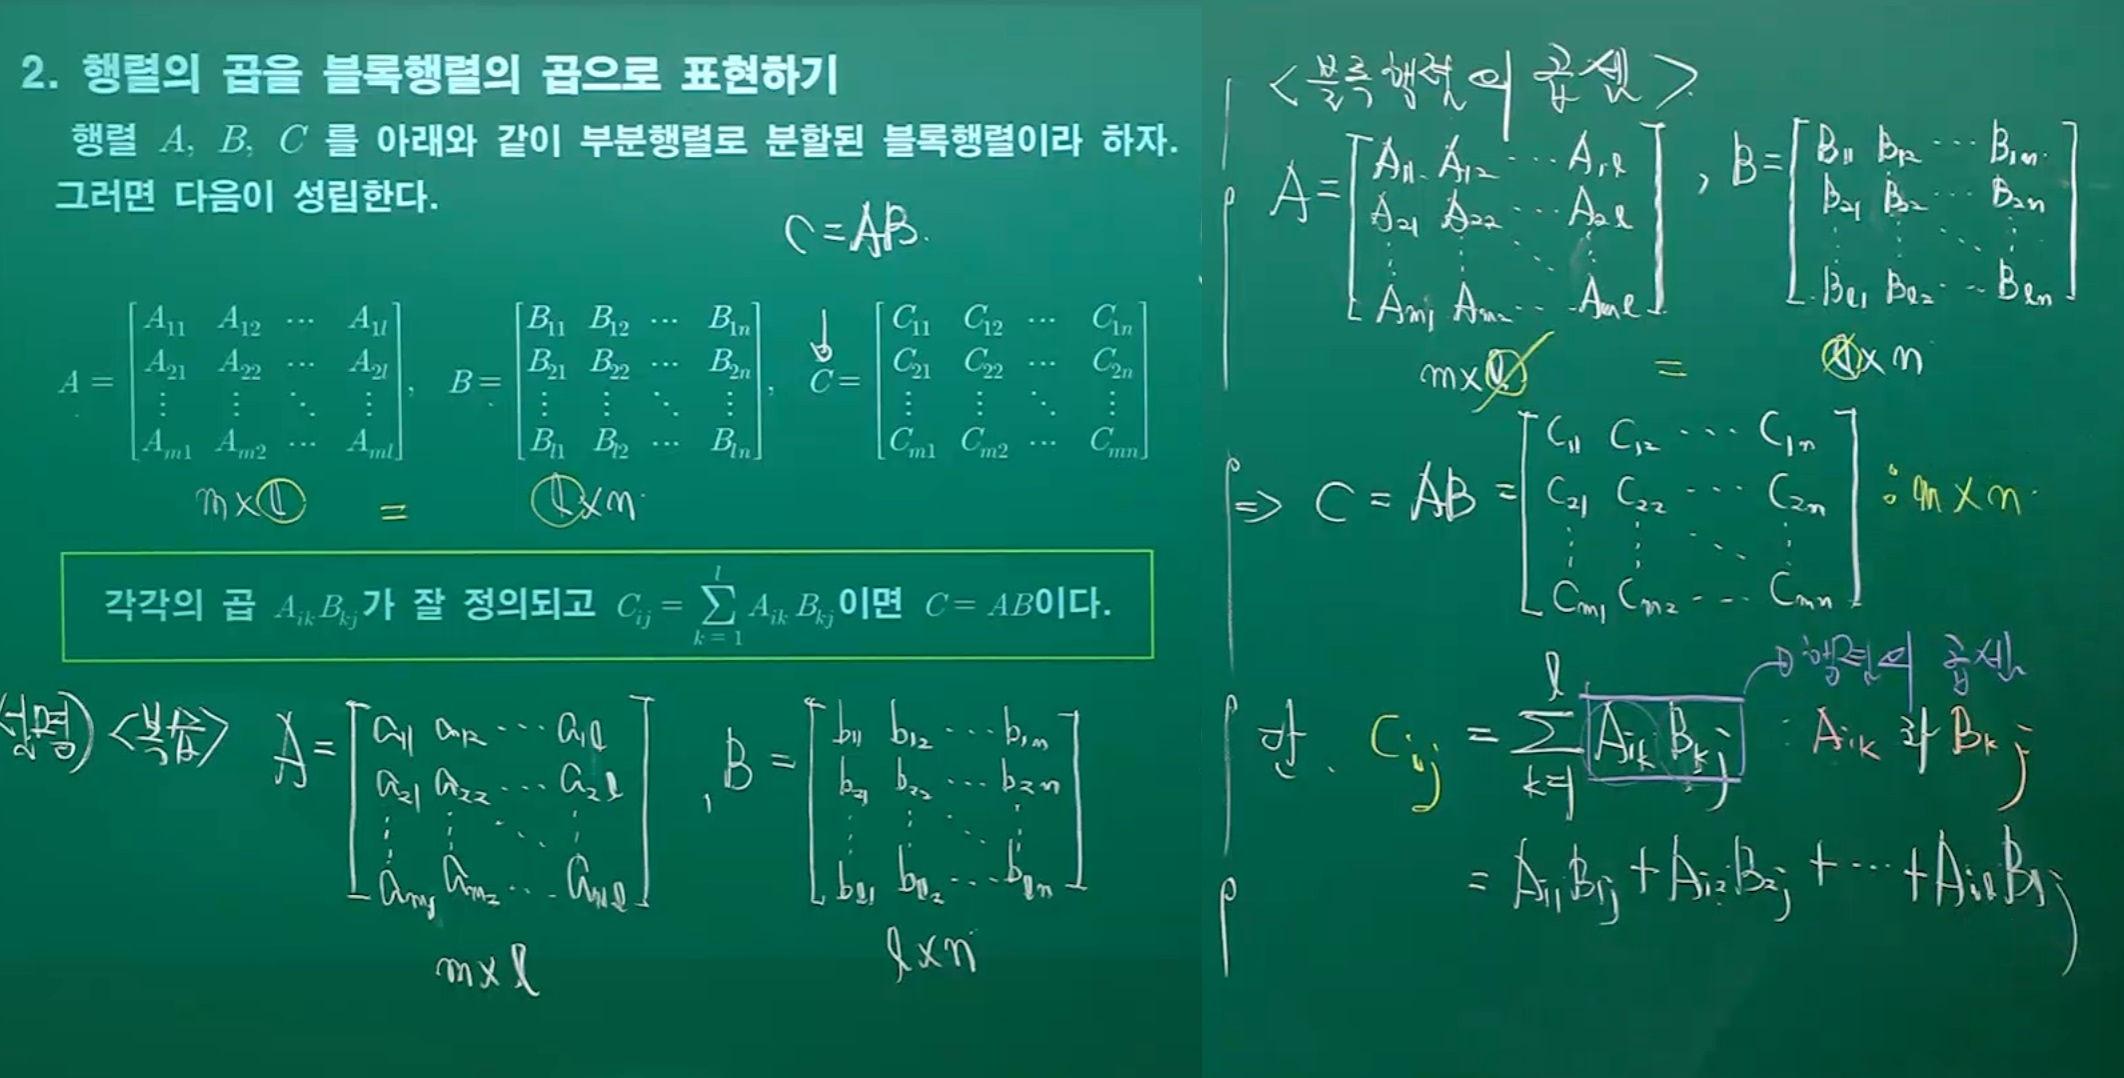 2. 행렬의 곱을 블록행렬의 곱으로 표현하기
행렬 A, B, C 를 아래와 같이 부분행렬로 분할된 블록행렬이라 하자.
그러면 다음이 성립한다.
C = AB.
A = [ A11 A12 ⋯ A1l
A21 A22 ⋯ A2l
⋮ ⋮ ⋱ ⋮
Am1 Am2 ⋯ Aml ],
B = [ B11 B12 ⋯ B1n
B21 B22 ⋯ B2n
⋮ ⋮ ⋱ ⋮
Bl1 Bl2 ⋯ Bln ],
C = [ C11 C12 ⋯ C1n
C21 C22 ⋯ C2n
⋮ ⋮ ⋱ ⋮
Cm1 Cm2 ⋯ Cmn ]
m×l = l×n
각각의 곱 AikBkj가 잘 정의되고 Cij = ∑(k=1 to l) Aik Bkj 이면 C = AB이다.
(설명) <복습>
A = [ a11 a12 ⋯ a1l
a21 a22 ⋯ a2l
⋮ ⋮ ⋱ ⋮
am1 am2 ⋯ aml ]
m×l
, B = [ b11 b12 ⋯ b1n
b21 b22 ⋯ b2n
⋮ ⋮ ⋱ ⋮
bl1 bl2 ⋯ bln ]
l×n
<블록행렬의 곱셈>
A = [ A11 A12 ⋯ A1l
A21 A22 ⋯ A2l
⋮ ⋮ ⋱ ⋮
Am1 Am2 ⋯ Aml ]
, B = [ B11 B12 ⋯ B1n
B21 B22 ⋯ B2n
⋮ ⋮ ⋱ ⋮
Bl1 Bl2 ⋯ Bln ]
m×l = l×n
⇒ C = AB = [ C11 C12 ⋯ C1n
C21 C22 ⋯ C2n
⋮ ⋮ ⋱ ⋮
Cm1 Cm2 ⋯ Cmn ] : m×n
행렬의 곱셈
단. Cij = ∑(k=1 to l) Aik Bkj : Aik 와 Bkj
= Ai1B1j + Ai2B2j + ⋯ + AilBlj